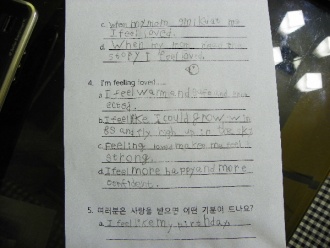 c. when my mom
I feel loved.
d. When my mom
story I feel love.
4. I'm feeling loved....
a. I feel warm and
cited.
b. I feel like I could grow win
gs and fly high up in the sky
c. Feeling loved makes me feel
strong.
d. I feel more happy and more
confident.
5. 여러분은 사랑을 받으면 어떤 기분이 드나요?
a. I feel like my birthday.